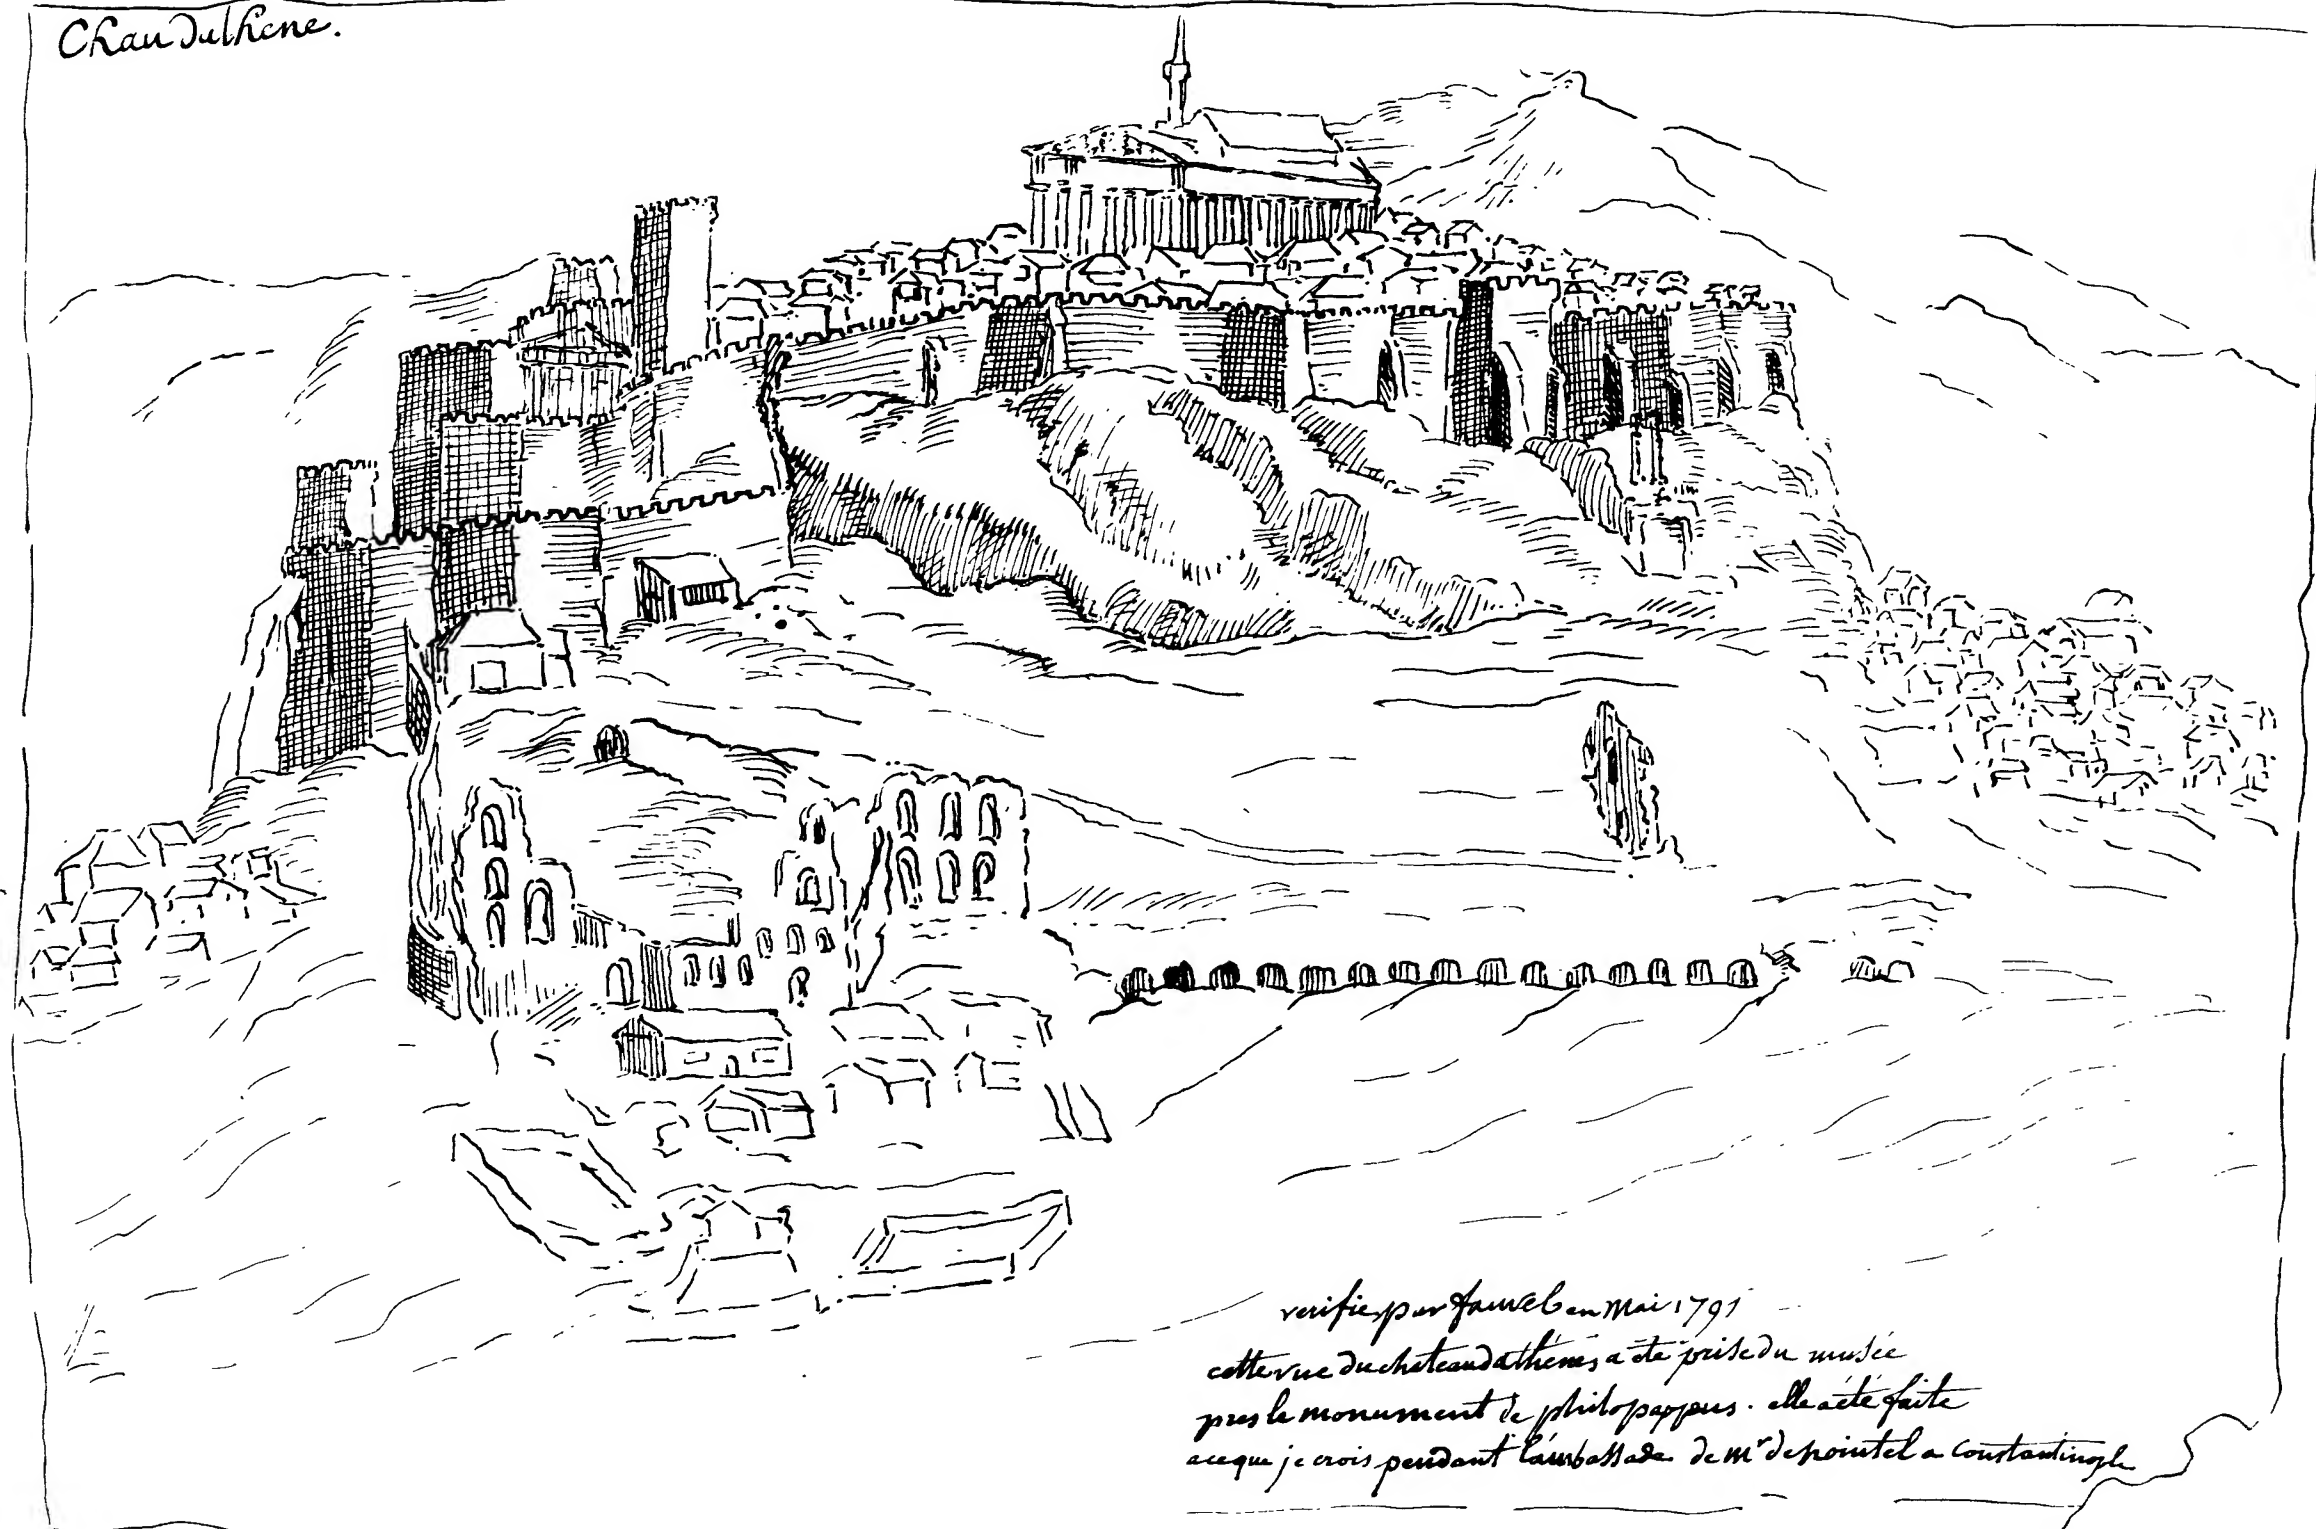 Chau Dathene.
verifie par fauvel en Mai 1791
cette vue du chateau dathénes a eté prise du musée
pres le monument de philopappus. elle a été faite
a ce que je crois pendant l'ambassade de mr de pointel a constantinople